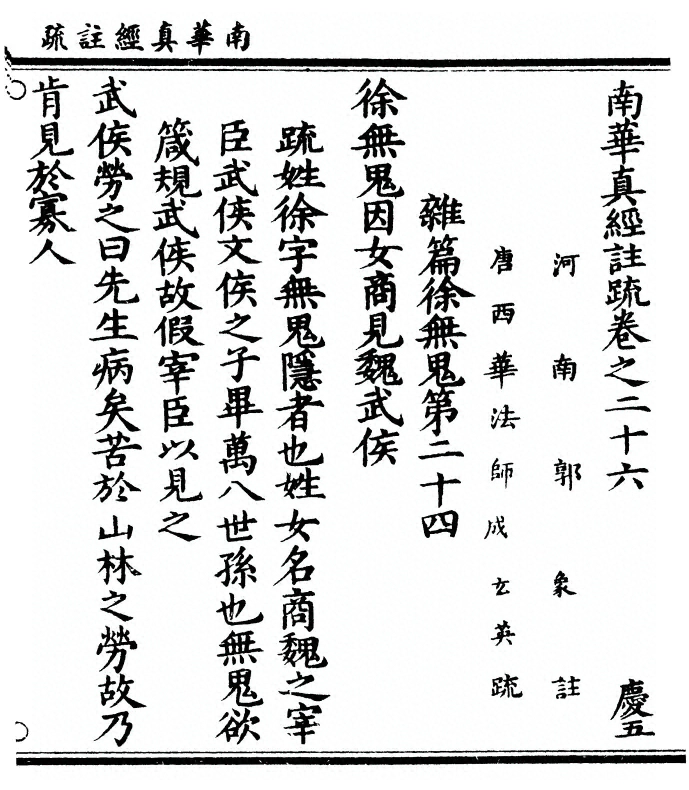 南華真經註疏
南華真經註疏卷之二十六 慶五
河南郭象註
唐西華法師成玄英疏
雜篇徐無鬼第二十四
徐無鬼因女商見魏武侯
疏姓徐字無鬼隱者也姓女名商魏之宰
臣武侯文侯之子畢萬八世孫也無鬼欲
箴規武侯故假宰臣以見之
武侯勞之曰先生病矣苦於山林之勞故乃
肯見於寡人